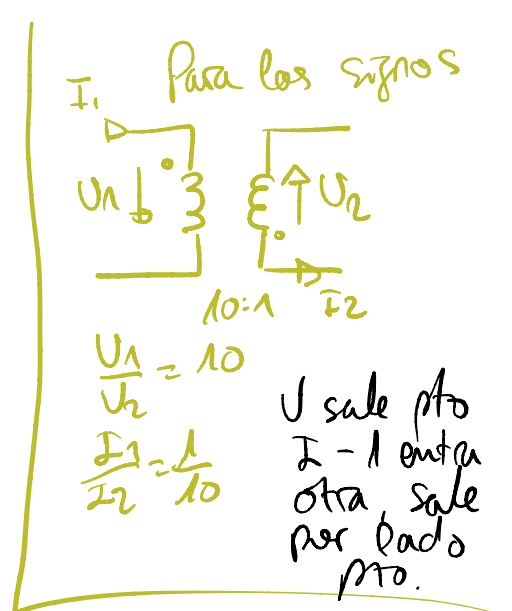 Para los signos
I1
U1
U2
10:1
I2
U1/U2 = 10
I1/I2 = 1/10
U sale pto
I - 1 entra
otra sale
por lado
pto.